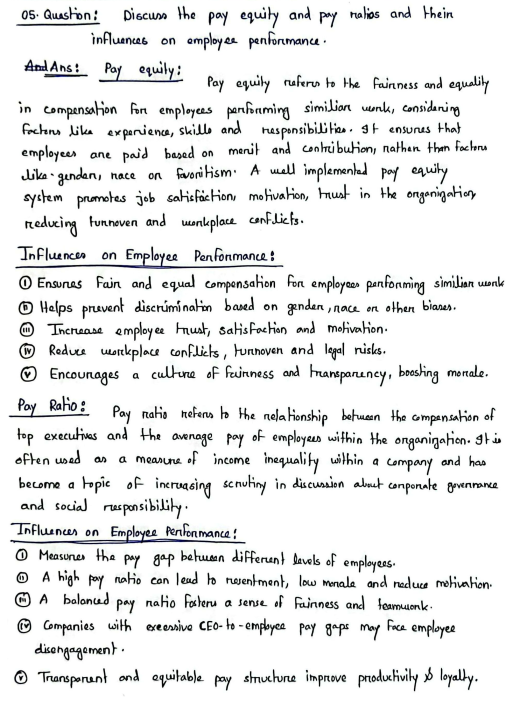 05. Question: Discuss the pay equity and pay ratios and their
influences on employee performance.
Ans: Pay equity:
Pay equity refers to the fairness and equality
in compensation for employees performing similiar work, considering
factors like experience, skills and responsibilities. It ensures that
employees are paid based on merit and contribution, rather than factors
like gender, race or favoritism. A well implemented pay equity
system promotes job satisfaction, motivation, trust in the organization,
reducing turnover and workplace conflicts.
Influences on Employee Performance:
(i) Ensures Fair and equal compensation for employees performing similiar work
(ii) Helps prevent discrimination based on gender, race or other biases.
(iii) Increase employee trust, satisfaction and motivation.
(iv) Reduce workplace conflicts, turnover and legal risks.
(v) Encourages a culture of fairness and transparency, boosting morale.
Pay Ratio: Pay ratio refers to the relationship between the compensation of
top executives and the average pay of employees within the organization. It is
often used as a measure of income inequality within a company and has
become a topic of increasing scrutiny in discussion about corporate governance
and social responsibility.
Influences on Employee Performance:
(i) Measures the pay gap between different levels of employees.
(ii) A high pay ratio can lead to resentment, low morale and reduce motivation.
(iii) A balanced pay ratio fosters a sense of fairness and teamwork.
(iv) Companies with excessive CEO-to-employee pay gaps may face employee
disengagement.
(v) Transparent and equitable pay structure improve productivity & loyalty.